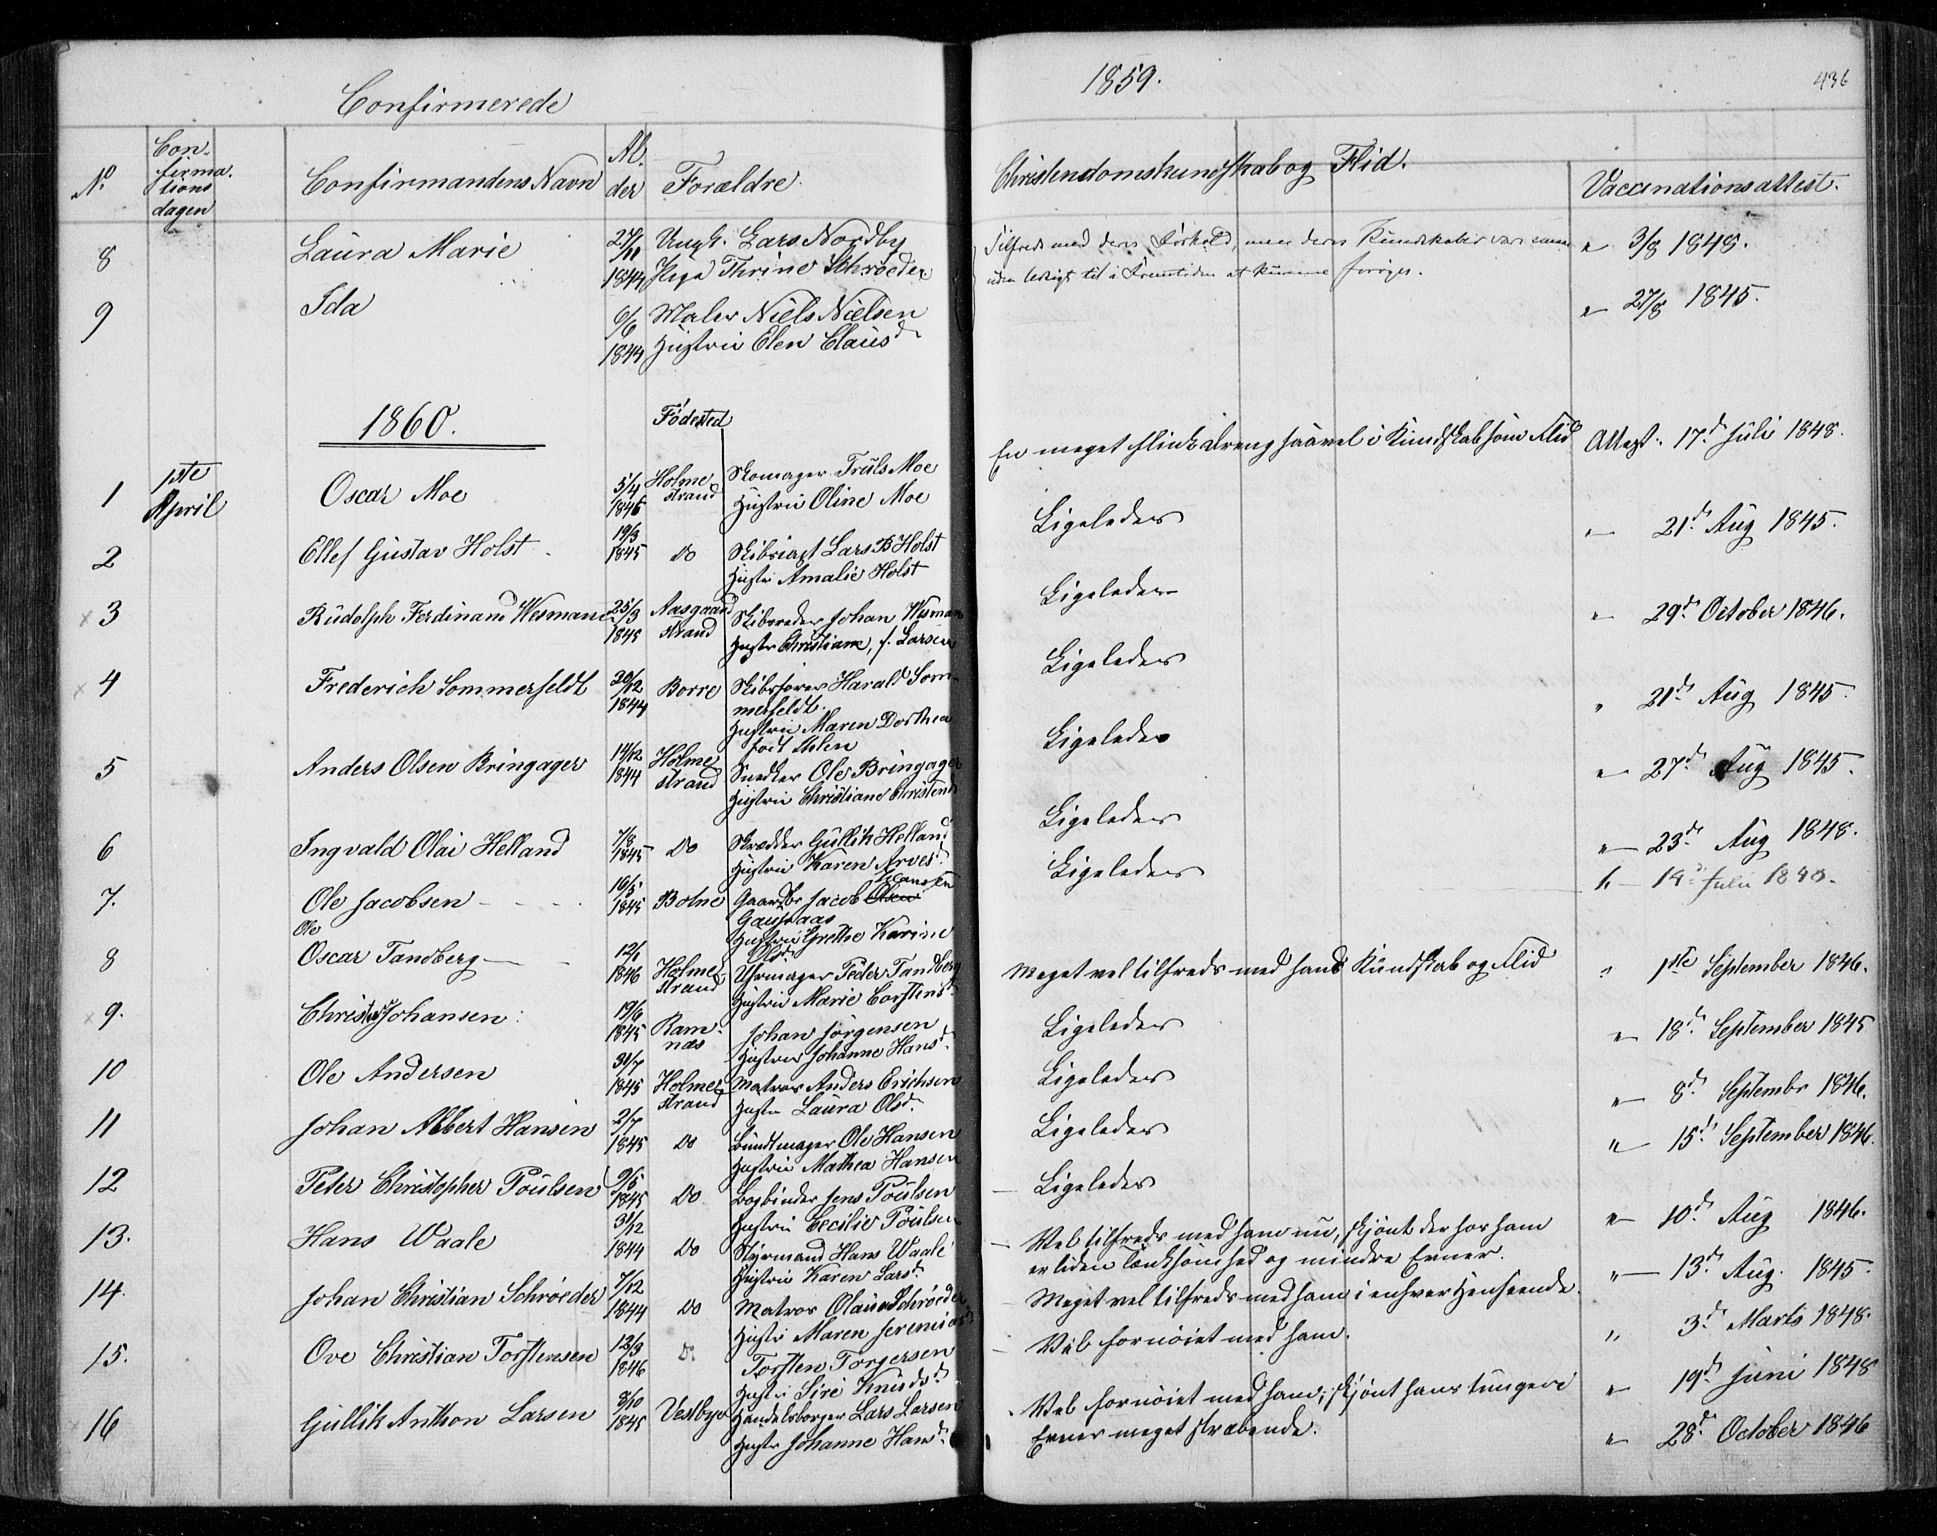 Confirmerede
1859.
436
No
Con-
firma-
tions
dagen
Confirmandens Navn
Al-
der
Forældre.
Christendomskundskab og Flid.
Vaccinationsattest.
8 Laura Marie 27/11 1844 Ungk. Lars Nordby
Thrine Schrøeder
Tilfreds med deres Forhold, men deres Kundskaber
til i Fremtiden at kunne forøges.
" 3/8 1848.
9 Ida 6/6 1844 Maler Niels Nielsen
Hustru Elen Clausd.
" 27/8 1845.
1860.
Fødested
1 1ste April Oscar Moe 5/4 1845 Holme-
strand
Skomager Truls Moe
Hustru Oline Moe
En meget flink dreng saavel i Kundskab som Flid
Attest. 17d. Juli 1848.
2 Ellef Gustav Holst 19/3 1845 do
Lars B Holst
Hustr Amalie Holst
Ligeledes
" 21d. Aug 1845.
3 Rudolph Ferdinand Wesmann 25/3 1845 Aasgaard
strand
Skibsreder Johan Wesman
Hustr Christiane, f. Larsen
Ligeledes
" 29d. October 1846.
4 Frederich Sommerfeldt 20/12 1844 Borre
Skibsfører Harald Som-
merfeldt.
Hustru Maren Dorthea
født
Ligeledes
" 21d. Aug 1845.
5 Anders Olsen Bringager 14/12 1844 Holme
strand
Snedker Ole Bringager
Hustru Christiane Christensd
Ligeledes
" 27d. Aug 1845.
6 Ingvald Olai Helland 7/8 1845 Do
Skrædder Gullik Helland
Hustru Karen Arvesd.
Ligeledes
" 23d. Aug 1848.
7. Ole Jacobsen 16/5 1845 Botne
Gaardbr Jacob Olsen
Hustru Grethe Karine
Olsd.
Ligeledes
Juli
8 Ole
Oscar Tandberg 12/1 1846 Holme-
strand
Uhrmager Peder Tandberg
Hustru Marie Torstensd.
Meget vel tilfreds med hans Kundskab og Flid
" 1ste September 1846.
9. Johansen 19/6 1845 Ram-
næs
Johan Jørgensen
Hustru Johanne Hansd.
Ligeledes
" 18d. September 1845
10 Ole Andersen 30/7 1845 Holme-
strand
Matros Anders Erichsen
Hustr Laura Olsd.
Ligeledes
" 8d. Septembr 1846.
11 Johan Albert Hansen 2/7 1845 Do
Bundtmager Ole Hansen
Hustru Mathea Hansen
Ligeledes
" 15d. September 1846.
12 Peter Christopher Poulsen 9/5 1845 Do
Bogbinder Jens Poulsen
Hustru Cecilie Poulsen
Ligeledes
" 10d. Aug 1846.
13. Hans Waale 31/12 1844 Do
Styrmand Hans Waale
Hustru Karen Larsd.
Vel tilfreds med ham nu, skjønt der hos ham
er liden Tænksomhed og mindre Evner.
" 13d. Aug. 1845.
14. Johan Christian Schrøeder 7/12 1844 Do
Matros Olaus Schrøeder
Hustr Maren Jeremiasd
Meget vel tilfreds med ham i enhver Henseende.
" 3d. Marts 1848.
15. Ove Christian Torstensen 12/3 1846 D.
Torsten Torgersen
Hustr Siri Knudsd.
Vel fornøiet med ham.
" 19d. Juni 1848
16 Gullik Anthon Larsen 8/10 1845 Vestbye
Handelsborger Lars Larsen
Hustr Johanne Hansd.
Vel fornøiet med ham, skjønt hans tungere
Evner meget stræbende.
" 28d. October 1846